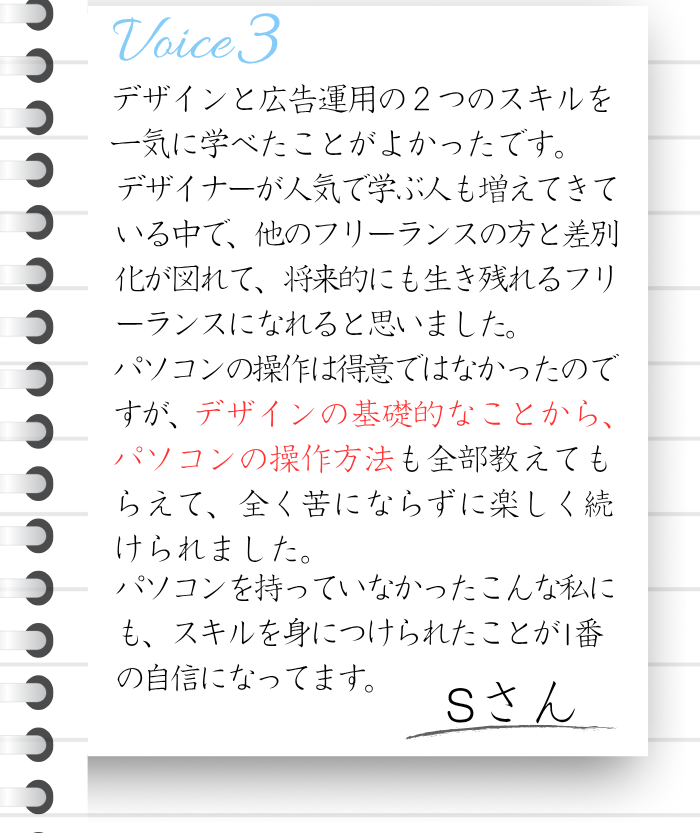 Voice3
デザインと広告運用の２つのスキルを
一気に学べたことがよかったです。
デザイナーが人気で学ぶ人も増えてきて
いる中で、他のフリーランスの方と差別
化が図れて、将来的にも生き残れるフリ
ーランスになれると思いました。
パソコンの操作は得意ではなかったので
すが、デザインの基礎的なことから、
パソコンの操作方法も全部教えても
らえて、全く苦にならずに楽しく続
けられました。
パソコンを持っていなかったこんな私に
も、スキルを身につけられたことが1番
の自信になってます。
Sさん